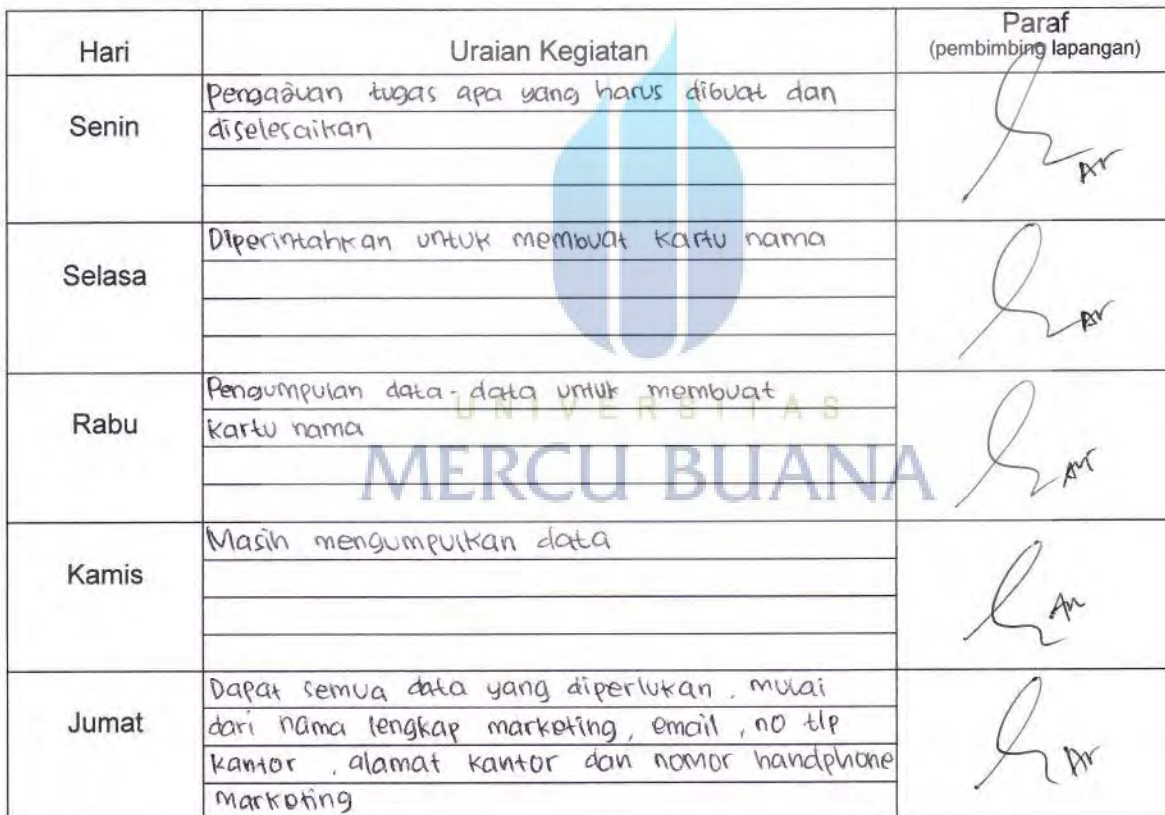 Hari Uraian Kegiatan Paraf
(pembimbing lapangan)
Senin
Pengajuan tugas apa yang harus dibuat dan
diselesaikan
Ar
Selasa
Diperintahkan untuk membuat kartu nama
Ar
Rabu
Pengumpulan data-data untuk membuat
kartu nama
UNIVERSITAS
MERCU BUANA
Kamis
Masih mengumpulkan data
Jumat
Dapat semua data yang diperlukan, mulai
dari nama lengkap marketing, email, no tlp
kantor, alamat kantor dan nomor handphone
marketing
Ar